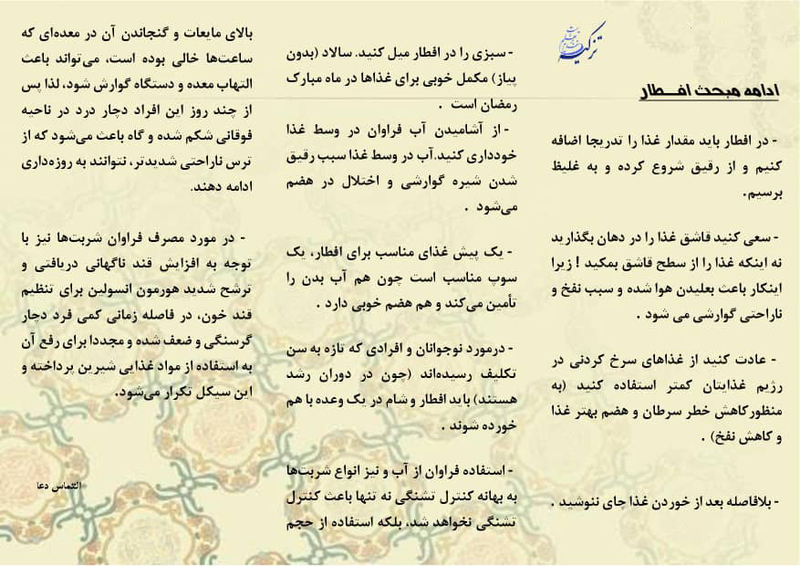 تزکیه
ادامه مبحث افطار
- در افطار باید مقدار غذا را تدریجا اضافه
کنیم و از رقیق شروع کرده و به غلیظ
برسیم.
- سعی کنید قاشق غذا را در دهان بگذارید
نه اینکه غذا را از سطح قاشق بمکید ! زیرا
اینکار باعث بعلیدن هوا شده و سبب نفخ و
ناراحتی گوارشی می شود .
- عادت کنید از غذاهای سرخ کردنی در
رژیم غذایتان کمتر استفاده کنید (به
منظورکاهش خطر سرطان و هضم بهتر غذا
و کاهش نفخ) .
- بلافاصله بعد از خوردن غذا چای ننوشید .
- سبزی را در افطار میل کنید. سالاد (بدون
پیاز) مکمل خوبی برای غذاها در ماه مبارک
رمضان است .
- از آشامیدن آب فراوان در وسط غذا
خودداری کنید.آب در وسط غذا سبب رقیق
شدن شیره گوارشی و اختلال در هضم
می‌شود .
- یک پیش غذای مناسب برای افطار، یک
سوپ مناسب است چون هم آب بدن را
تأمین می‌کند و هم هضم خوبی دارد .
- درمورد نوجوانان و افرادی که تازه به سن
تکلیف رسیده‌اند (چون در دوران رشد
هستند) باید افطار و شام در یک وعده با هم
خورده شوند .
- استفاده فراوان از آب و نیز انواع شربت‌ها
به بهانه کنترل تشنگی نه تنها باعث کنترل
تشنگی نخواهد شد، بلکه استفاده از حجم
بالای مایعات و گنجاندن آن در معده‌ای که
ساعت‌ها خالی بوده است، می‌تواند باعث
التهاب معده و دستگاه گوارش شود، لذا پس
از چند روز این افراد دچار درد در ناحیه
فوقانی شکم شده و گاه باعث می‌شود که از
ترس ناراحتی شدیدتر، نتوانند به روزه‌داری
ادامه دهند.
- در مورد مصرف فراوان شربت‌ها نیز با
توجه به افزایش قند ناگهانی دریافتی و
ترشح شدید هورمون انسولین برای تنظیم
قند خون، در فاصله زمانی کمی فرد دچار
گرسنگی و ضعف شده و مجددا برای رفع آن
به استفاده از مواد غذایی شیرین پرداخته و
این سیکل تکرار می‌شود.
التماس دعا